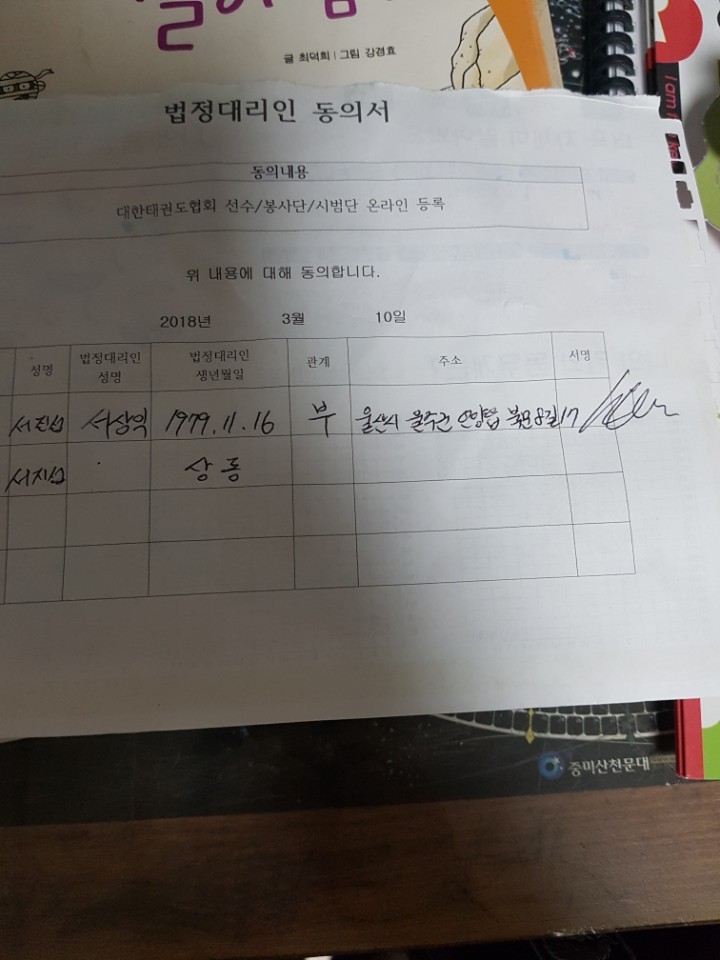 글 최덕희 | 그림 강경효
I am
법정대리인 동의서
동의내용
대한태권도협회 선수/봉사단/시범단 온라인 등록
위 내용에 대해 동의합니다.
2018년 3월 10일
성명 법정대리인 성명 법정대리인 생년월일 관계 주소 서명
서진섭 서상익 1979.11.16 부 울산시 울주군 언양읍 17
서지섭 상동
중미산천문대